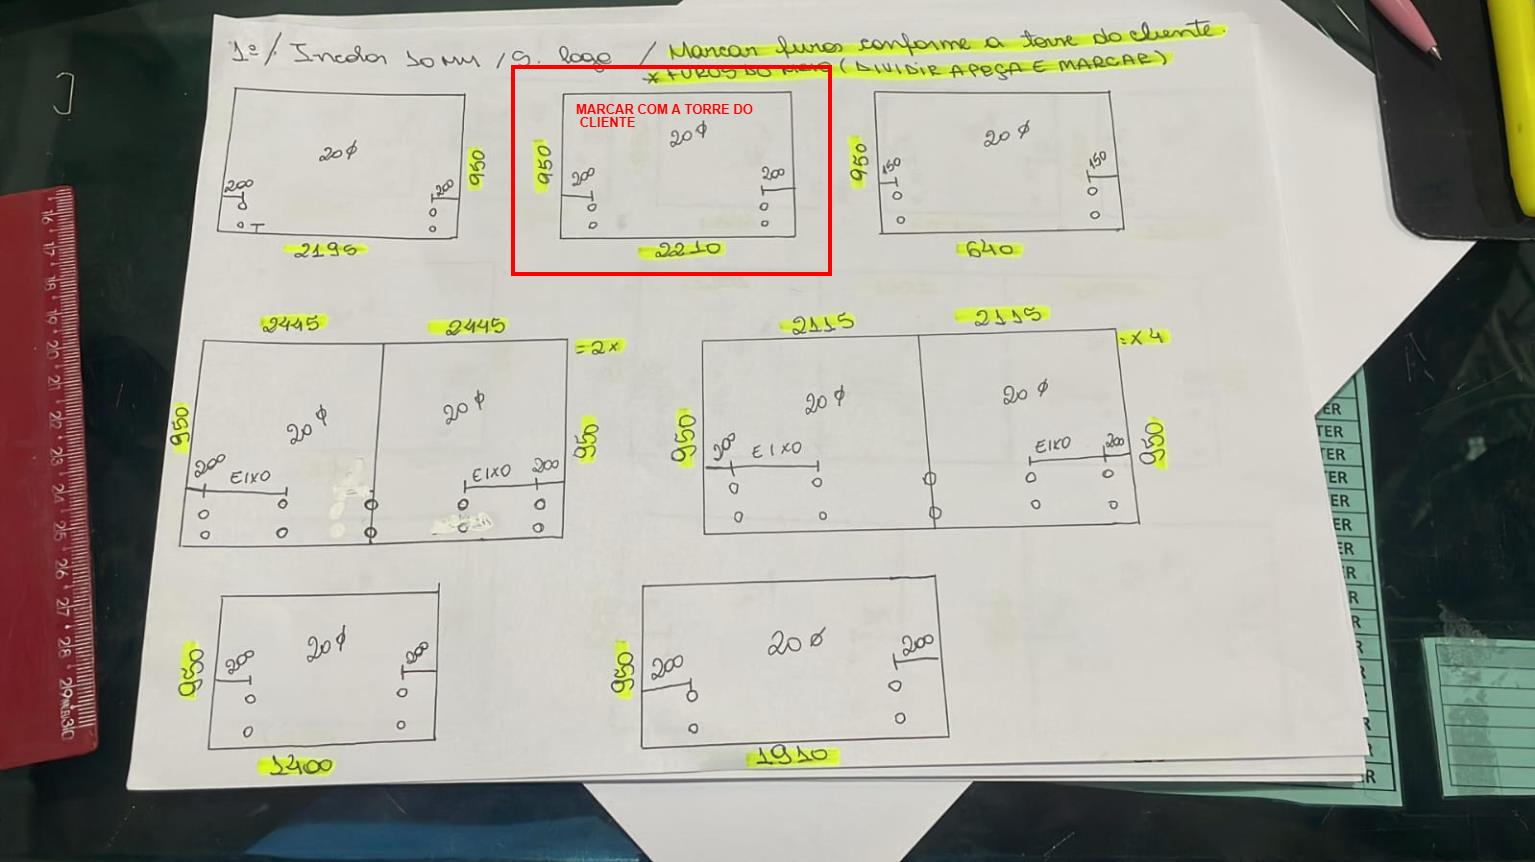 1º / Incolor 10 MM / S. logo / Marcar furos conforme a torre do cliente.
* FUROS DO MEIO (DIVIDIR A PEÇA E MARCAR)
MARCAR COM A TORRE DO
CLIENTE
20 φ
20 φ
20 φ
950
950
950
200
200
200
200
150
150
2195
2210
640
2445
2445
= 2x
2115
2115
= x 4
950
20 φ
20 φ
950
950
20 φ
20 φ
950
200
EIXO
EIXO
200
200
EIXO
EIXO
200
950
20 φ
200
200
1400
950
20 φ
200
200
1910
16
17
18
19
20
21
22
23
24
25
26
27
28
29
30
ER
TER
TER
ER
ER
ER
ER
R
R
R